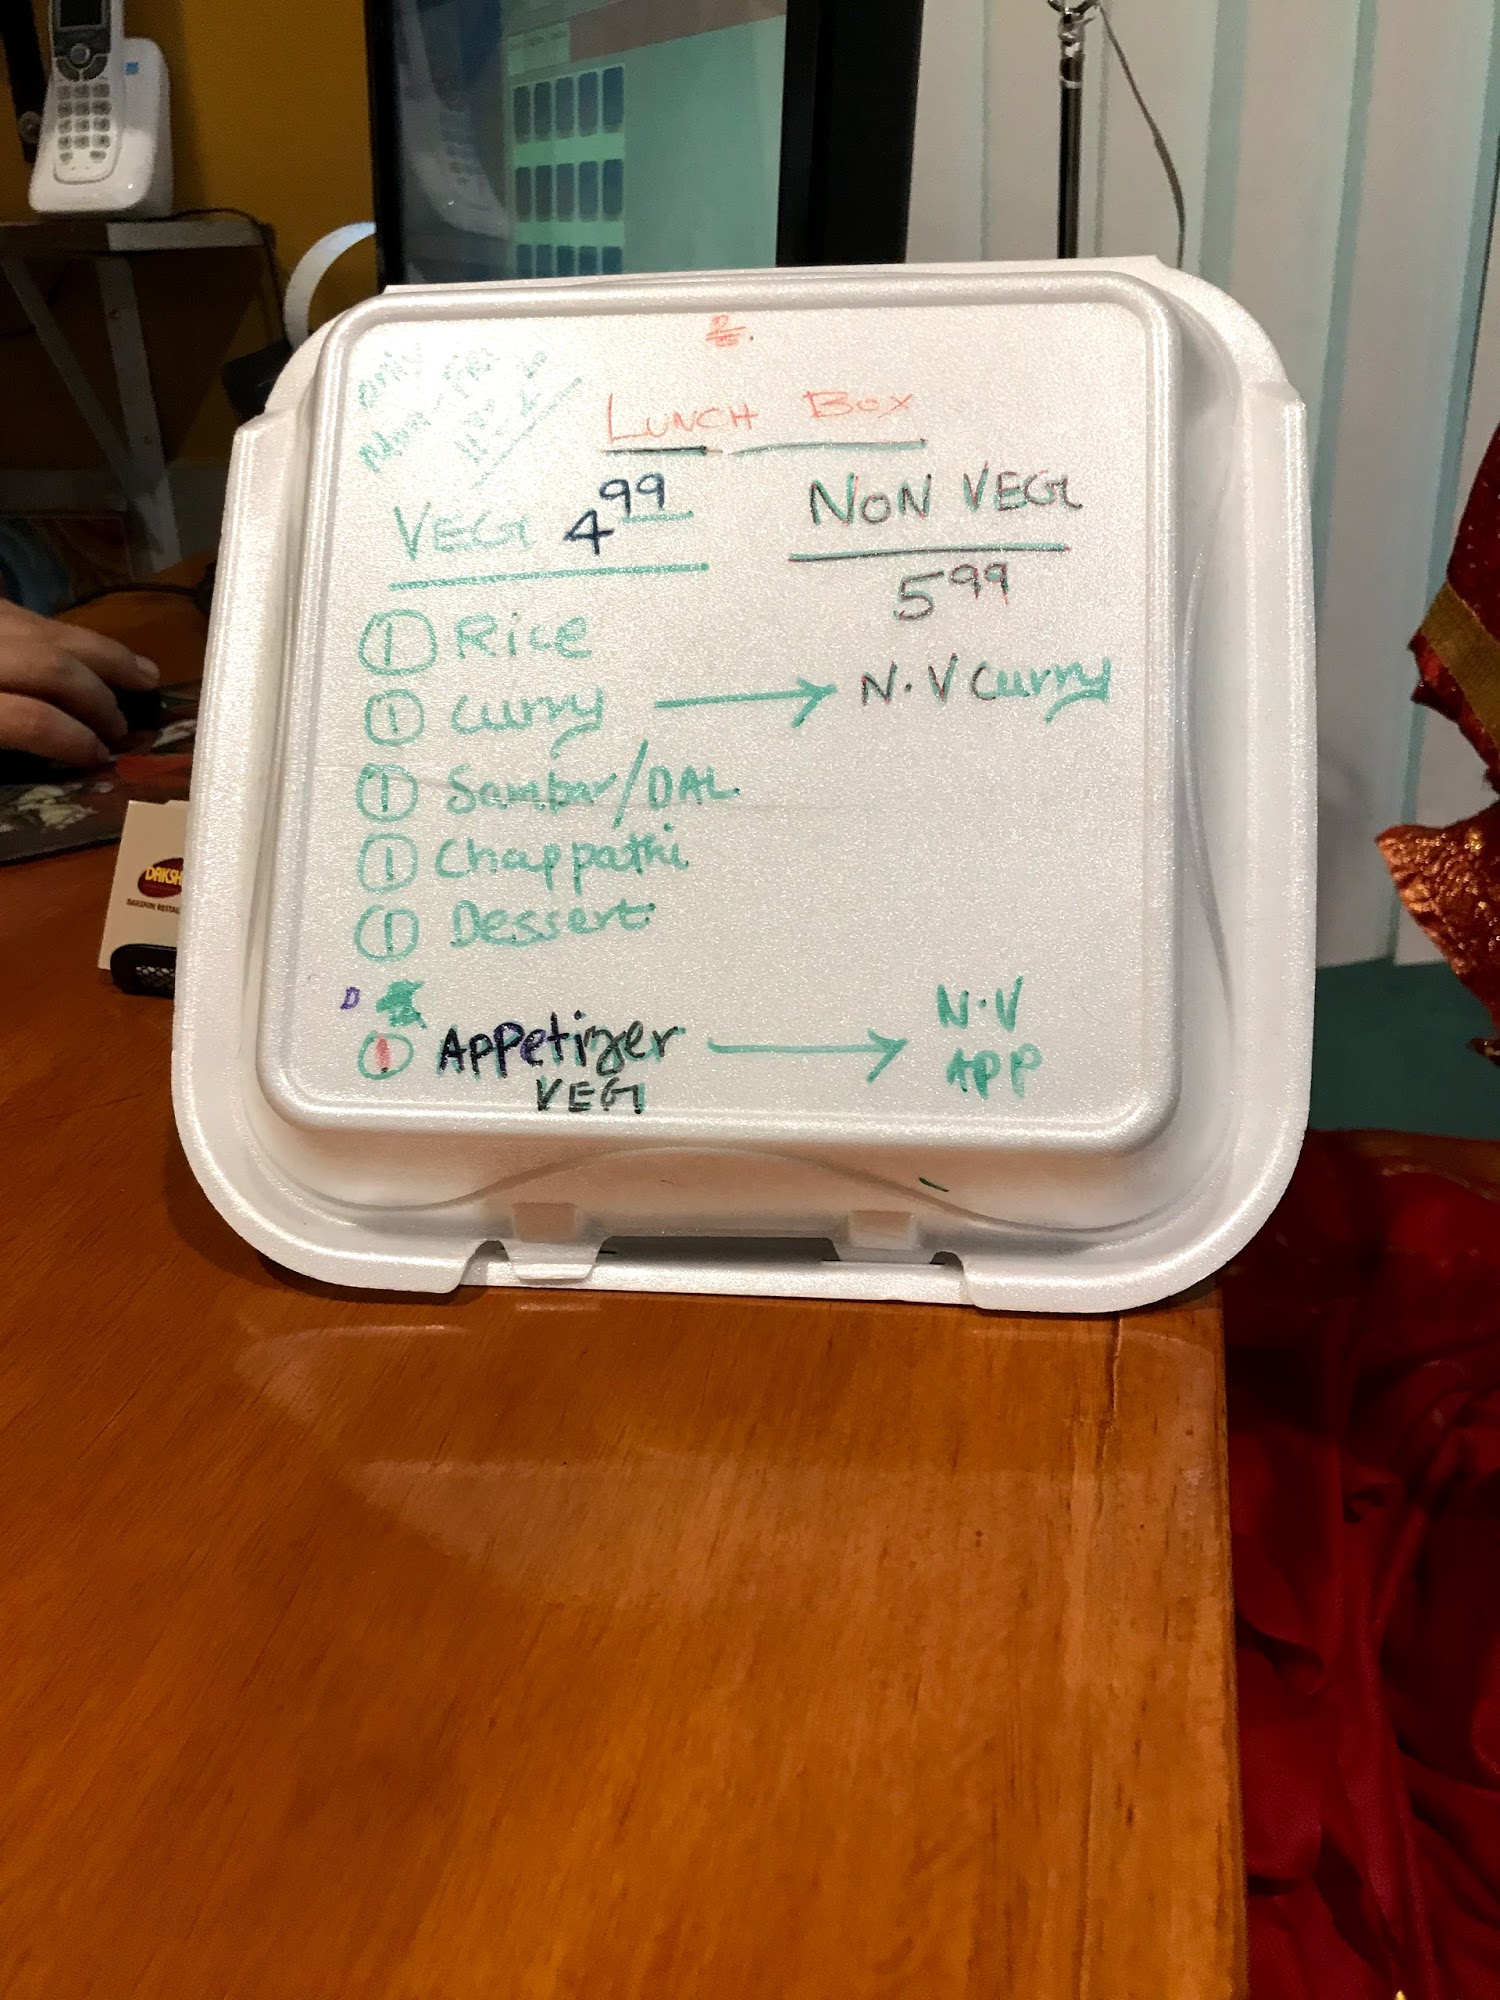 only
Mon - FRI
LUNCH BOX
VEG 4.99
NON VEG
5.99
① Rice
① Curry → N.V Curry
① Sambar/DAL
① Chappathi
① Dessert
D
① Appetizer → N.V
VEG APP
DAKSH
DAKSHIN RESTAU